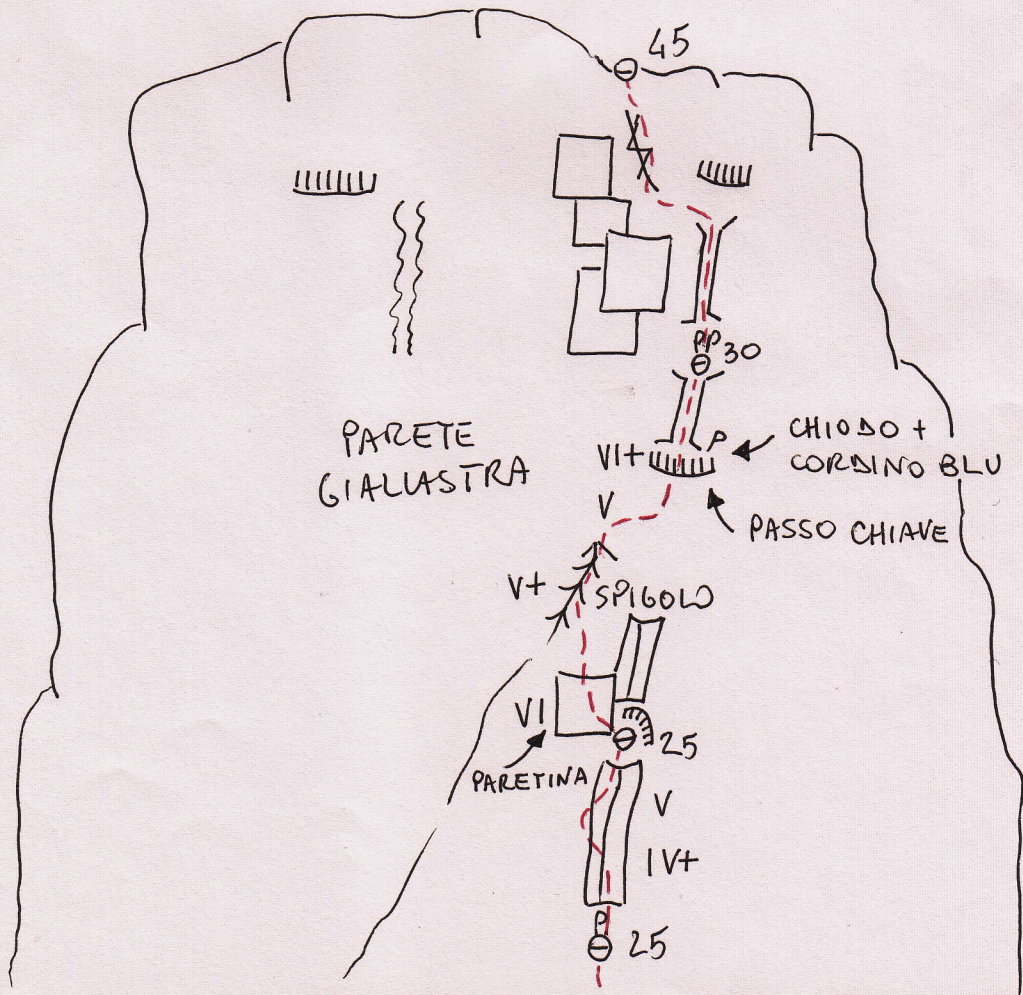 45
PP 30
PARETE
GIALLASTRA
VI+
P
CHIODO +
CORDINO BLU
V
PASSO CHIAVE
V+
SPIGOLO
VI
25
PARETINA
V
IV+
P
25